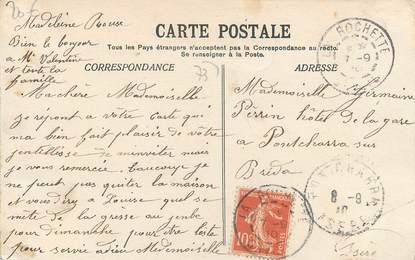 Madeleine Rouse
Bien le bonjour
a Mr Valentine
et toute la
famille
CARTE POSTALE
Tous les Pays étrangers n'acceptent pas la Correspondance au recto.
Se renseigner à la Poste.
CORRESPONDANCE
ADRESSE
LA ROCHETTE
7-9
Ma chère Mademoiselle
je répont a vôtre carte qui
ma bien fait plaisir de votre
gentillesse de minviter mais
je vous remercie beaucoup je
ne peut pas quiter la maison
et vous direz a Louise quel se
mete de la gresse au jenbe
pour dimanche pour être toute
pour servie adieu Mademoiselle
Mademoiselle Germaine
Perrin hôtel de la gare
a Pontcharra sur
Breda
Isère
PONTCHARRA
8-9
10